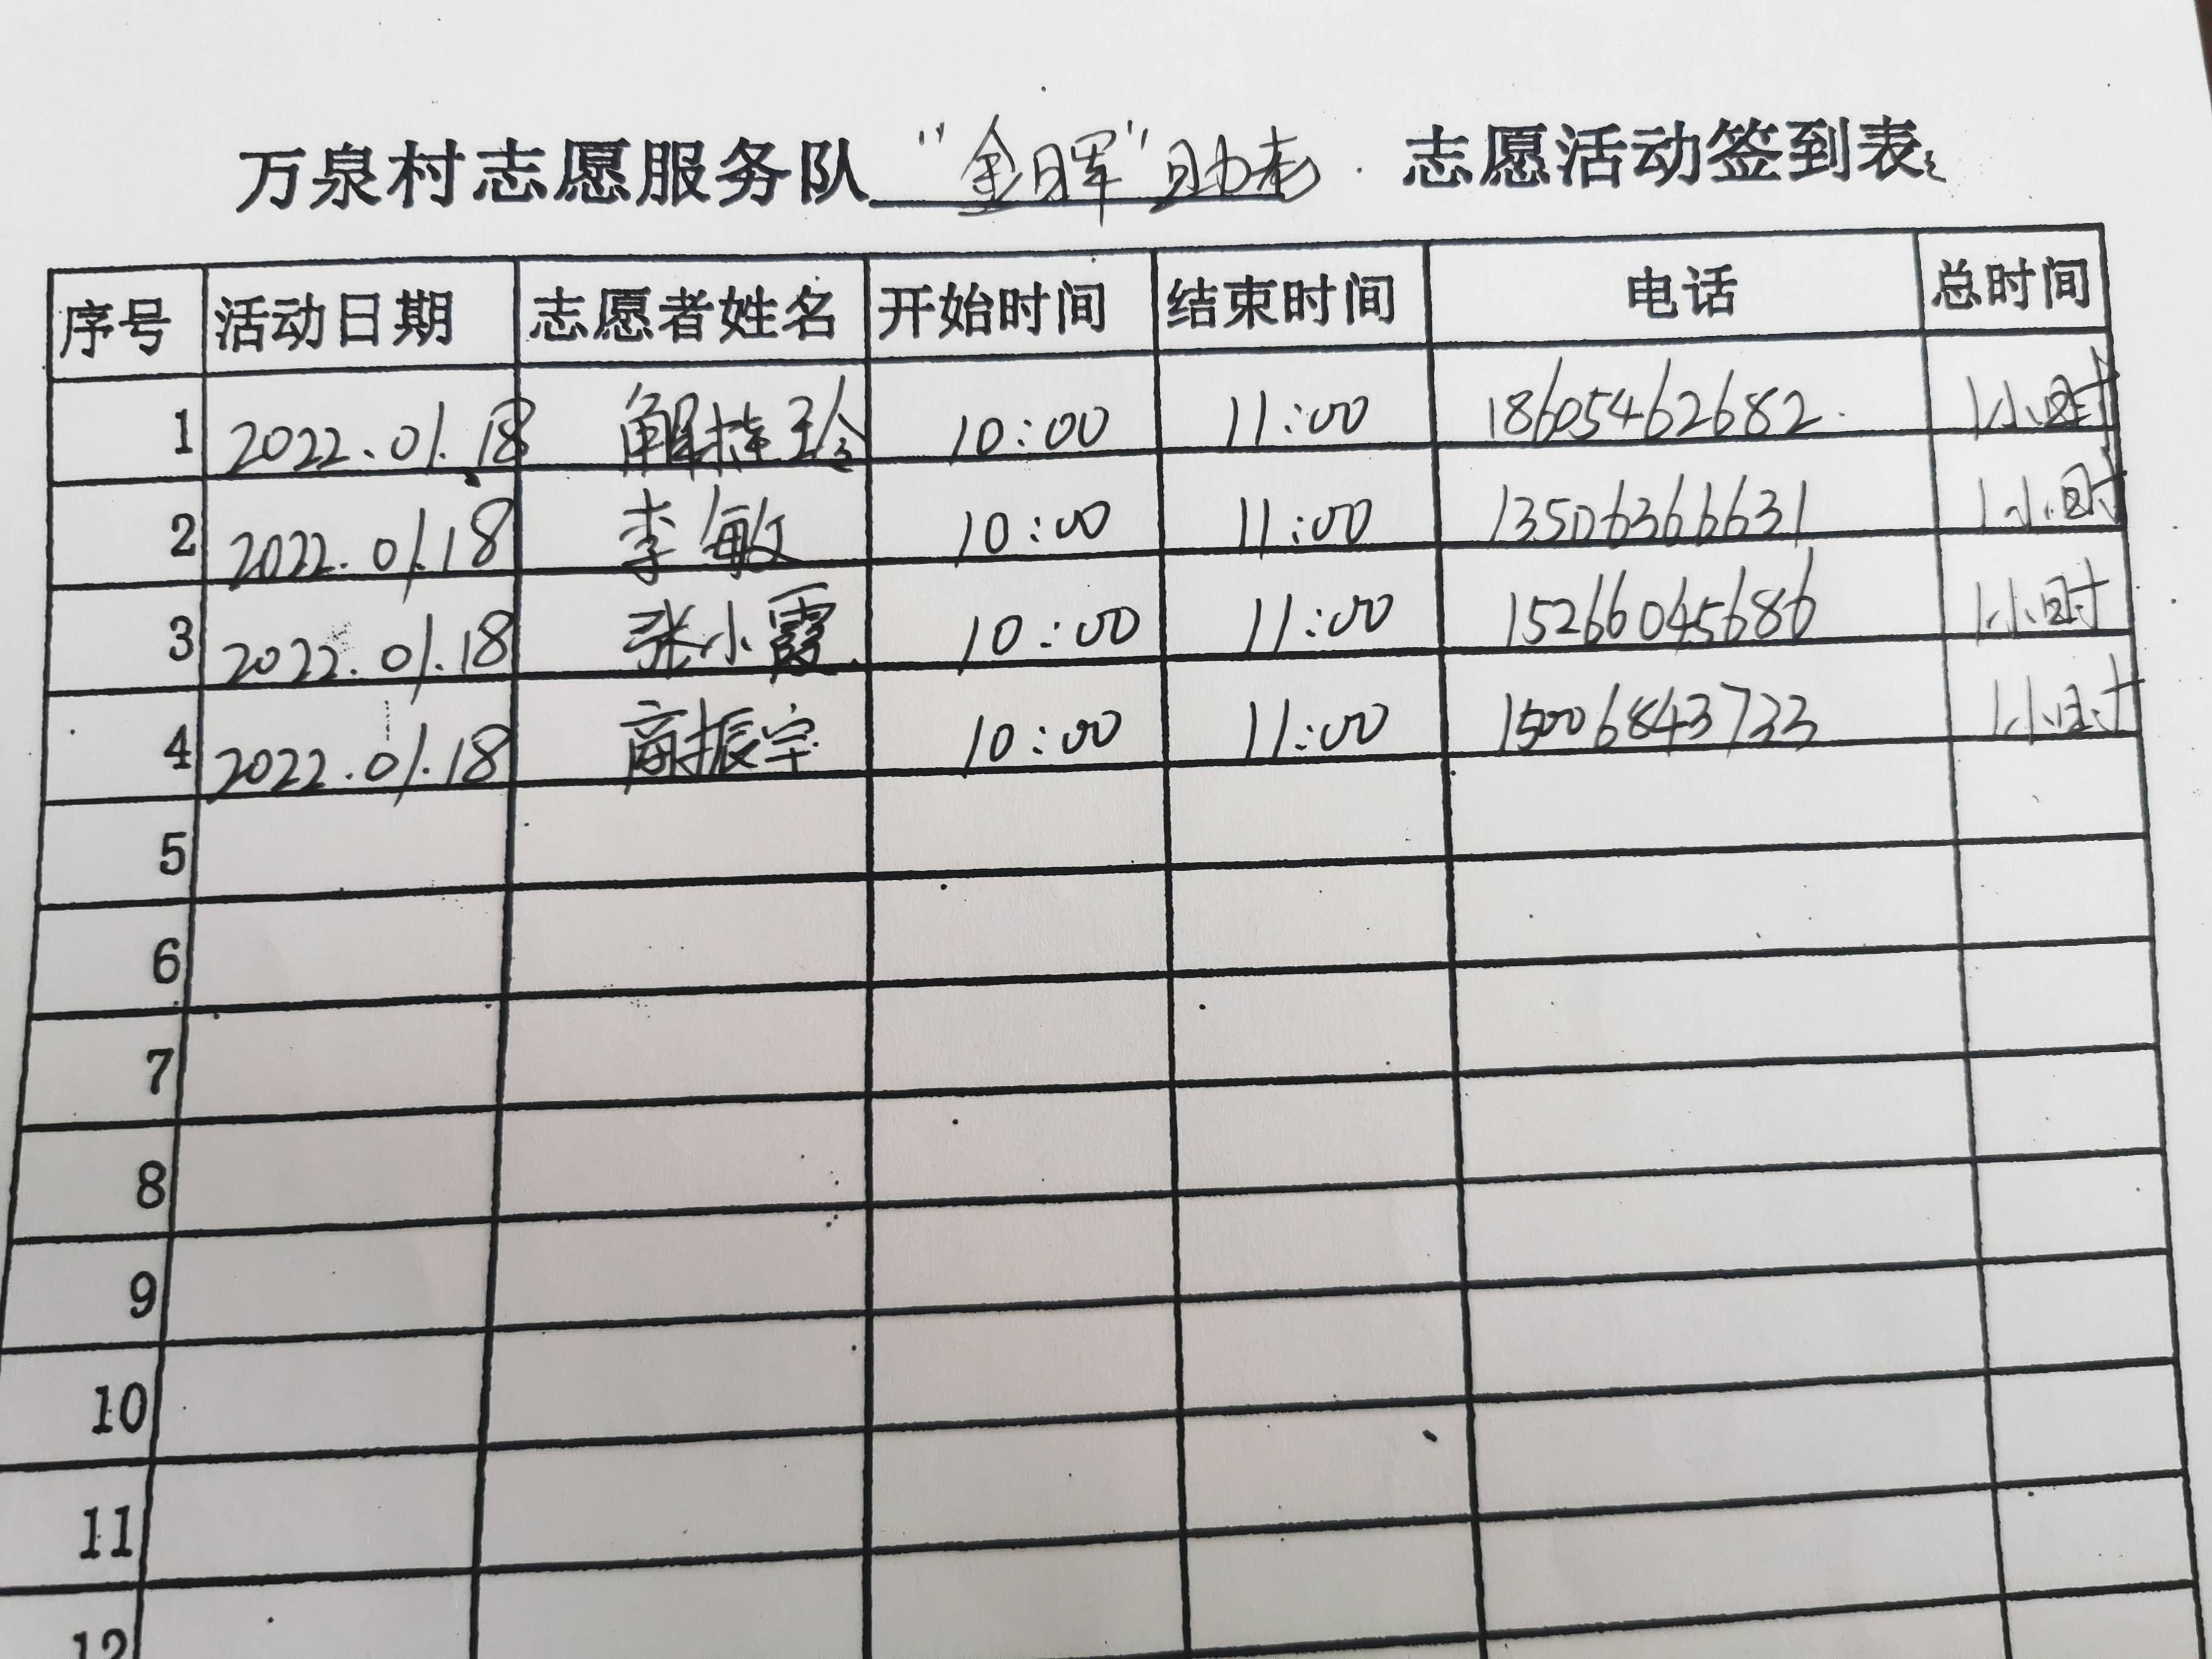 万泉村志愿服务队 "金晖"助老 志愿活动签到表
序号 活动日期 志愿者姓名 开始时间 结束时间 电话 总时间
1 2022.01.18 解桂玲 10:00 11:00 18605462682 1小时
2 2022.01.18 李敏 10:00 11:00 13506366631 1小时
3 2022.01.18 张小霞 10:00 11:00 15266045686 1小时
4 2022.01.18 商振宇 10:00 11:00 15006843733 1小时
5
6
7
8
9
10
11
12